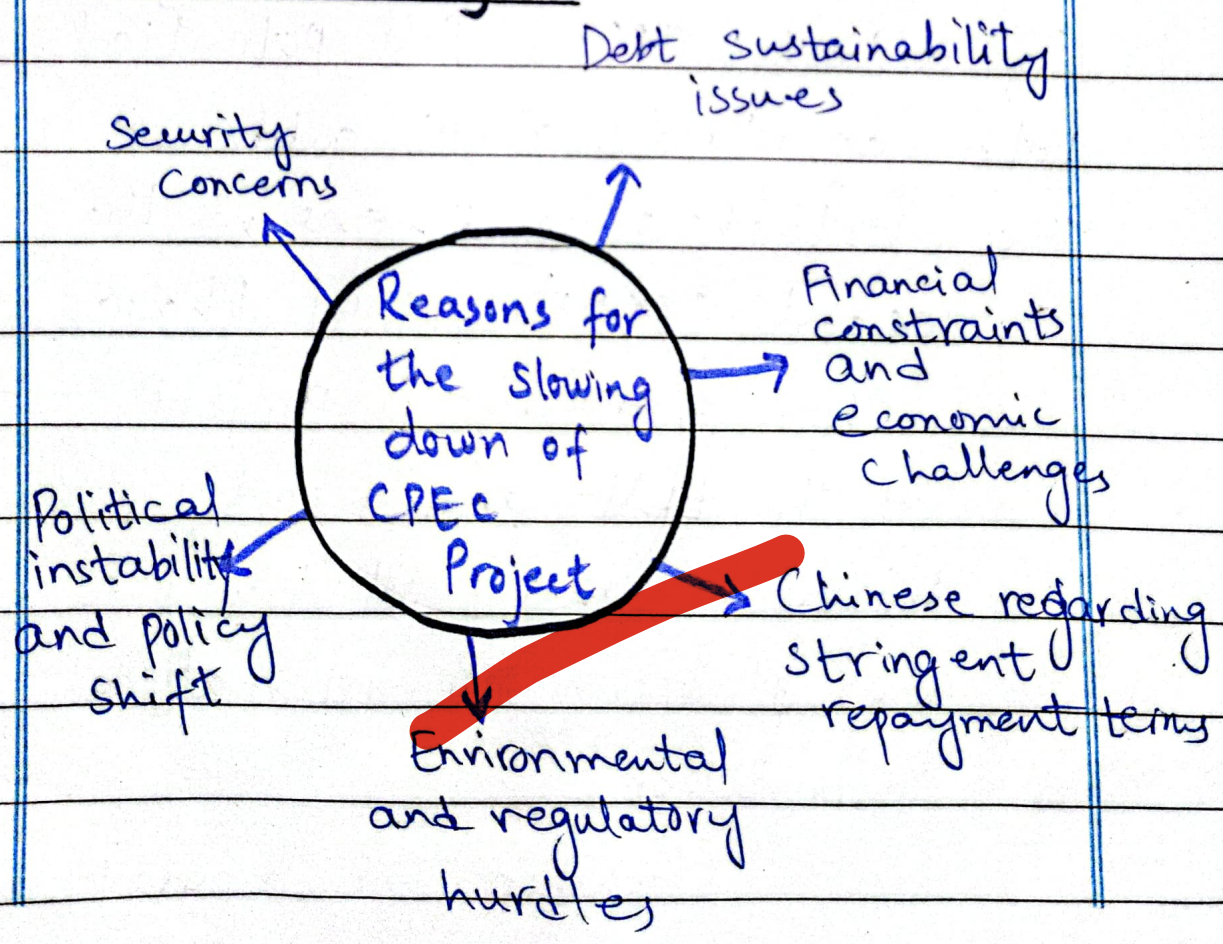 Debt sustainability
issues
Security
Concerns
Reasons for
the slowing
down of
CPEC
Project
Financial
constraints
and
economic
challenges
Political
instability
and policy
shift
Chinese regarding
stringent
repayment terms
Environmental
and regulatory
hurdles